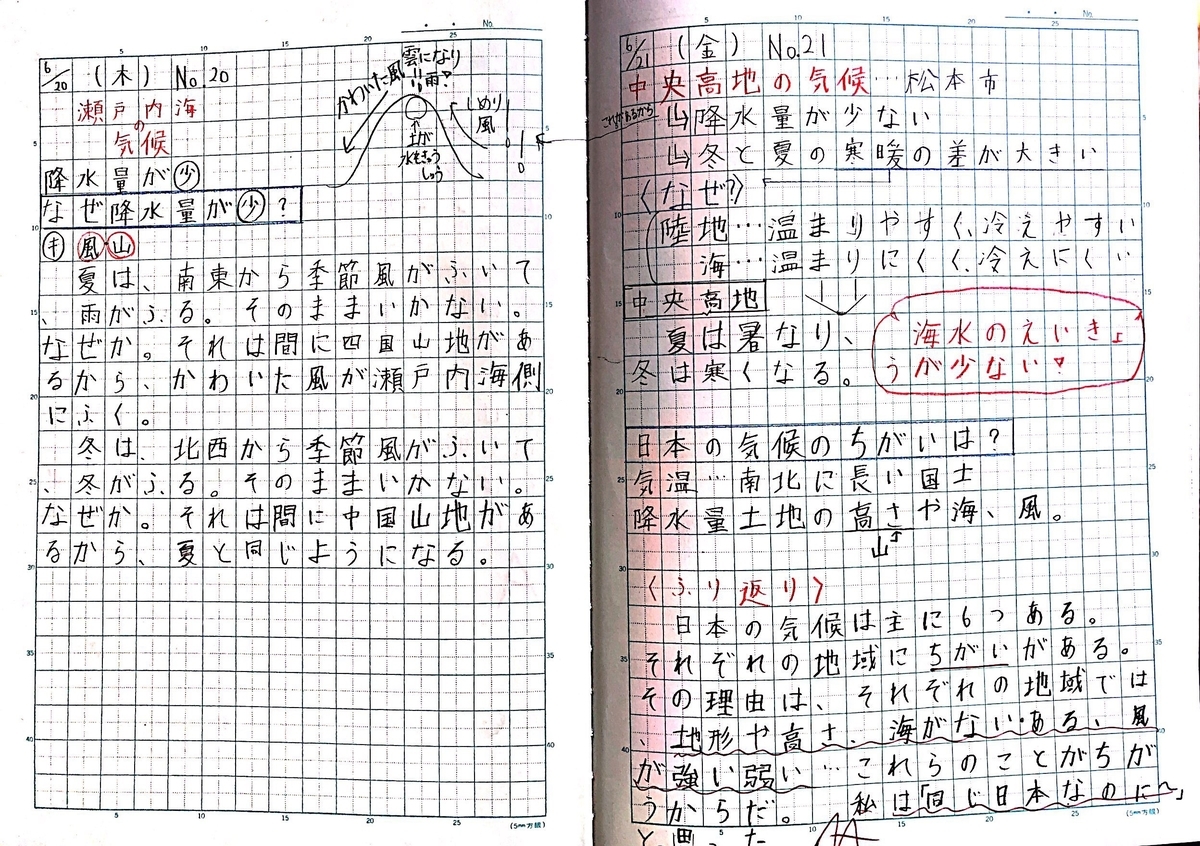 6/20 (木) No.20
瀬戸内海
の
気候
雲になり
雨!
かわいた風
しめり
風
土が
水をきゅう
しゅう
降水量が少
なぜ降水量が少?
キ 風・山
夏は、南東から季節風がふいて
、雨がふる。そのままいかない。
なぜか。それは間に四国山地があ
るから、かわいた風が瀬戸内海側
にふく。
冬は、北西から季節風がふいて
、冬がふる。そのままいかない。
なぜか。それは間に中国山地があ
るから、夏と同じようになる。
(5mm方眼)
No.
6/21 (金) No.21
中央高地の気候…松本市
これがあるから
降水量が少ない
冬と夏の寒暖の差が大きい
〈なぜ?〉
陸地…温まりやすく、冷えやすい
海…温まりにくく、冷えにくい
中央高地
夏は暑なり、
冬は寒くなる。
海水のえいきょ
うが少ない!
日本の気候のちがいは?
気温…南北に長い国土
降水量土地の高さや海、風。
山
〈ふり返り〉
日本の気候は主に6つある。
それぞれの地域にちがいがある。
その理由は、それぞれの地域では
、地形や高さ、海がない・ある、風
が強い弱い…これらのことがちが
うからだ。 私は「同じ日本なのに〜」
(5mm方眼)